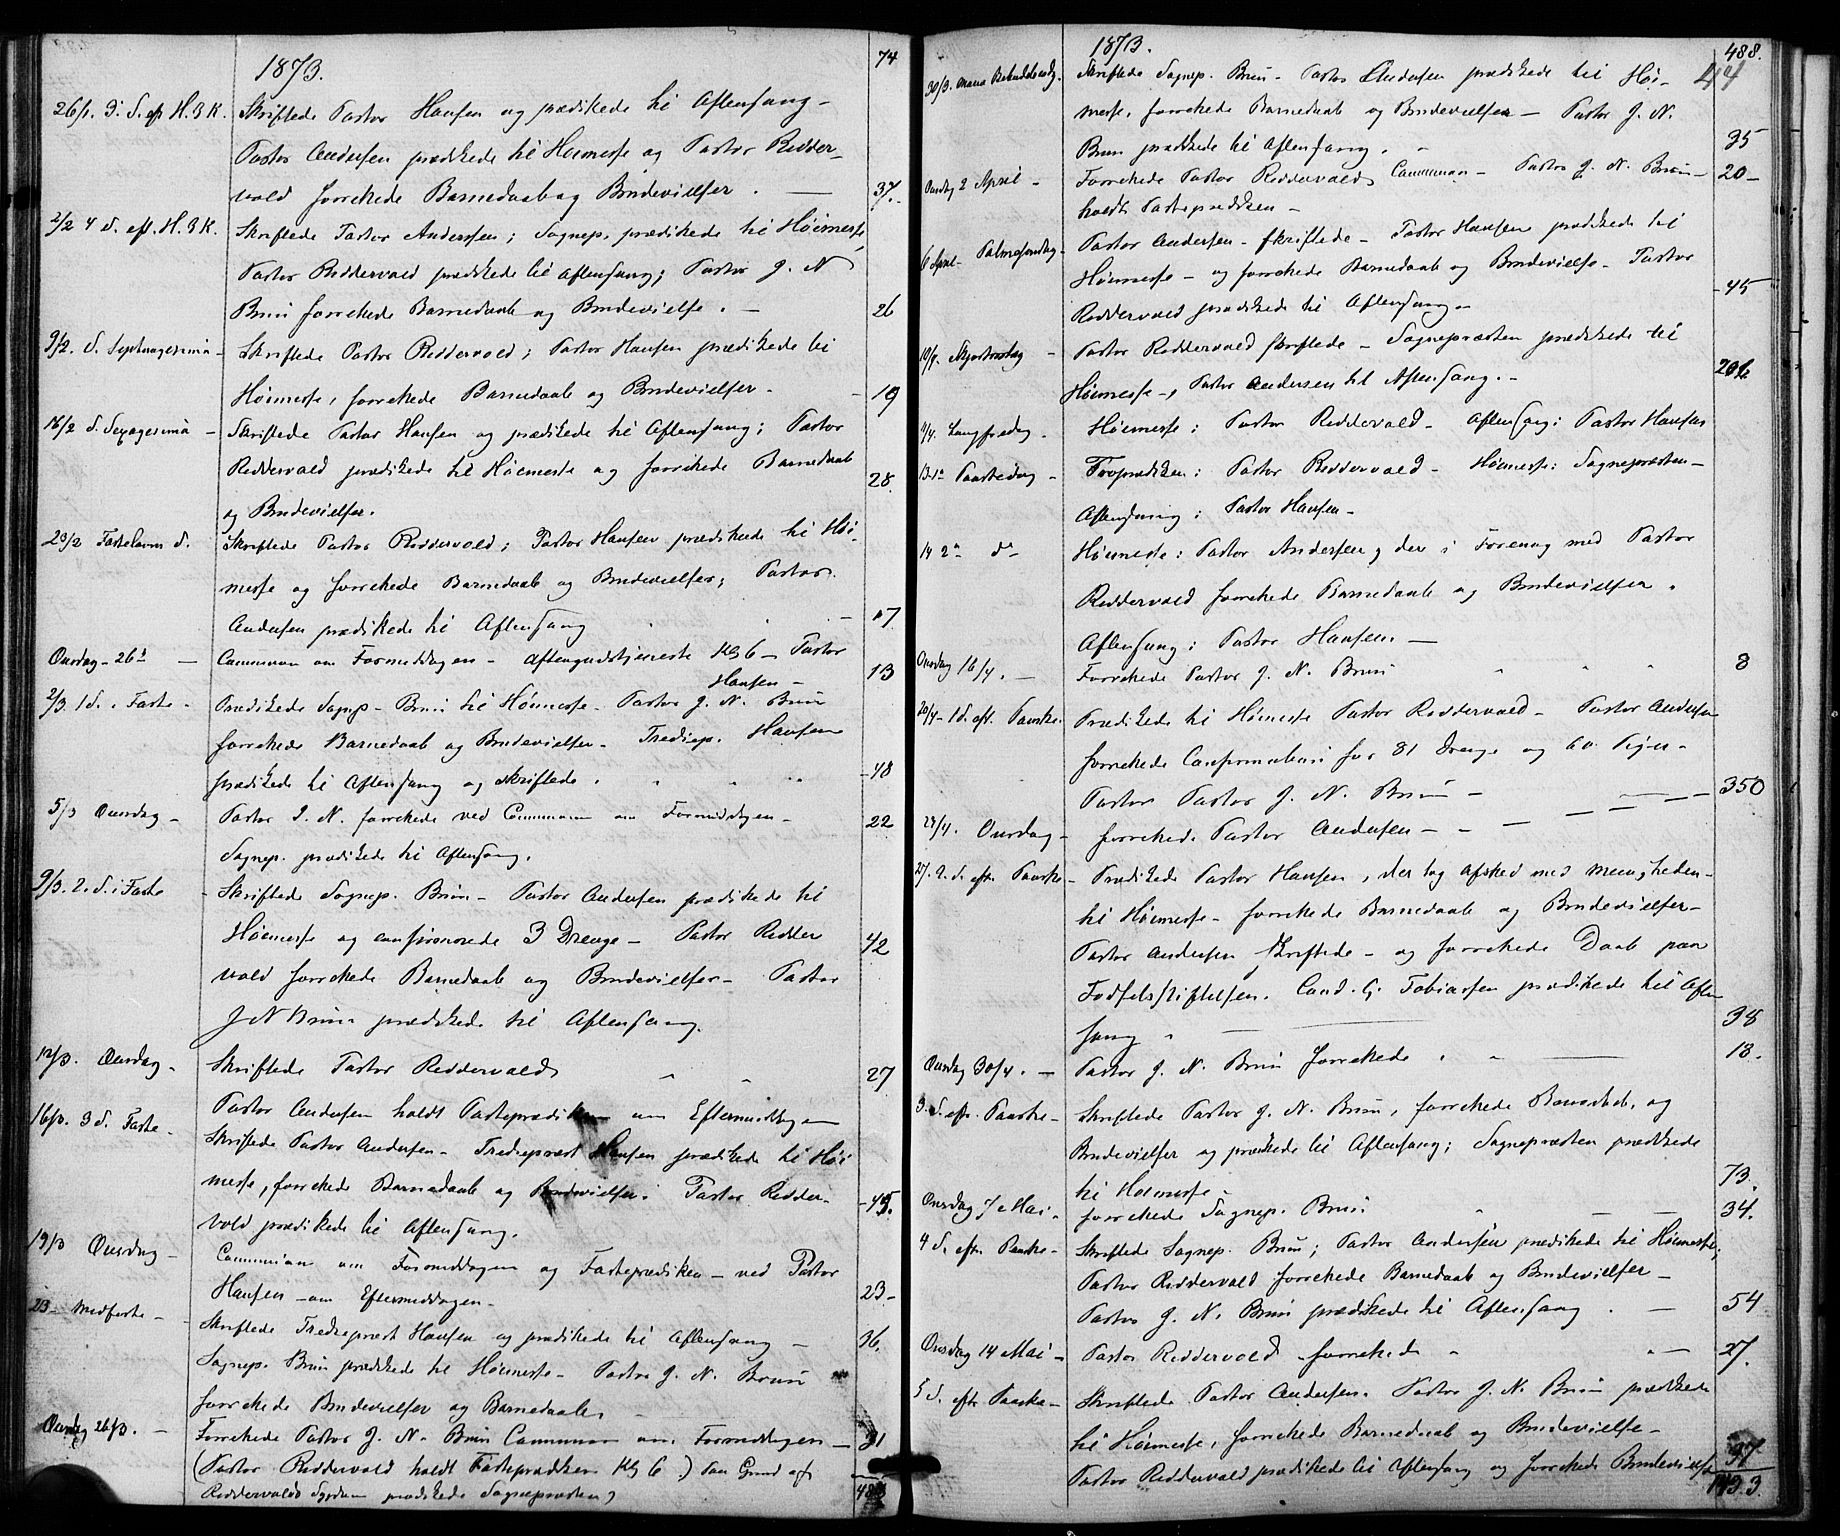 1873.
74
26/1. 3. S. ef H. 3 K. Skriftede Pastor Hansen og prædikede til Aftensang –
Pastor Andersen prædikede til Høimesse og Pastor Redder-
vold forrettede Barnedaab og Brudevielser. — 37.
2/2 4 S. eft. H. 3 K. Skriftede Pastor Andersen; Sognep. prædikede til Høimesse,
Pastor Reddervold prædikede til Aftensang; Pastor J. N.
Brun forrettede Barnedaab og Brudevielse. – 26
9/2. S. Septuagesima – Skriftede Pastor Reddervold; Pastor Hansen prædikede til
Høimesse, forrettede Barnedaab og Brudevielser – 19
16/2 S. Sexagesima – Skriftede Pastor Hansen og prædikede til Aftensang; Pastor
Reddervold prædikede til Høimesse og forrettede Barnedaab 28.
og Brudevielser.
23/2 Fastelavns S. Skriftede Pastor Reddervold; Pastor Hansen prædikede til Høi-
messe og forrettede Barnedaab og Brudevielser; Pastor
Andersen prædikede til Aftensang – 17.
Onsdag – 26d – Communion om Formiddagen – Aftengudstjeneste Kl 6 – Pastor
Hansen – 13
2/3. 1 S. i Faste – Prædikede Sognep – Brun til Høimesse – Pastor J. N. Brun
forrettede Barnedaab og Brudevielser – Trediep. Hansen
prædikede til Aftensang og skriftede. – 48
5/3 Onsdag – Pastor J. N. forrettede ved Communion om Formiddagen – 22
Sognep. prædikede til Aftensang.
9/3. 2. S. i Faste – Skriftede Sognep. Brun – Pastor Andersen prædikede til
Høimesse og confirmerede 3 Drenge – Pastor Redder 42
vold forrettede Barnedaab og Brudevielser – Pastor
J N Brun prædikede til Aftensang.
12/3. Onsdag – Skriftede Pastor Reddervold 27
Pastor Andersen holdt Fasteprædiken om Eftermiddagen
16/3. 3 S. Faste – Skriftede Pastor Andersen – Trediepræst Hansen prædikede til Høi
messe, forrettede Barnedaab og Brudevielser. Pastor Redder- – 45.
vold prædikede til Aftensang.
19/3 Onsdag – Communion om Formiddagen og Fasteprædiken – ved Pastor
Hansen – om Eftermiddagen – 23 –
23 – Midfaste – Skriftede Trediepræst Hansen og prædikede til Aftensang – 36.
Sognep. Brun prædikede til Høimesse – Pastor J. N. Brun
forrettede Brudevielser og Barnedaab.
Onsdag 26/3. – Forrettede Pastor J. N. Brun Communion om Formiddagen – 31
(Pastor Reddervold holdt Fasteprædiken Kl 6.) Paa Grund af
Reddervolds Sygdom prædikede Sognepræsten) 488
1873.
488.
44
30/3. Maria Bebudelsesdg. Skriftede Sognep. Brun – Pastor Andersen prædikede til Høi-
messe, forrettede Barnedaab og Brudevielser – Pastor J. N.
Brun prædikede til Aftensang. 35
Onsdag 2 April – Forrettede Pastor Reddervold Communion – Pastor J. N. Brun – 20 –
holdt Fasteprædiken –
6 April – Palmesøndag – Pastor Andersen – skriftede – Pastor Hansen prædikede til
Høimesse – og forrettede Barnedaab og Brudevielse – Pastor
Reddervold prædikede til Aftensang – – 45
10/4. Skjertorsdag – Pastor Reddervold skriftede – Sognepræsten prædikede til
Høimesse –, Pastor Andersen til Aftensang. – 206
11/4. Langfredag – Høimesse: Pastor Reddervold – Aftensang: Pastor Hansen
13 – 1ste Paaskedag – Froprædiken: Pastor Reddervold – Høimesse: Sognepræsten –
Aftensang: Pastor Hansen –
14 2den do – Høimesse: Pastor Andersen, der i Forening med Pastor
Reddervold forrettede Barnedaab og Brudevielser.
Aftensang: Pastor Hansen. —
Onsdag 16/4. – Forrettede Pastor J. N. Brun 8
20/4 – 1 S. eft. Paaske. Prædikede til Høimesse Pastor Reddervold – Pastor Andersen
forrettede Confirmation for 81 Drenge og 60 Piger –
Pastor Pastor J. N. Brun – 350
23/4. Onsdag – forrettede Pastor Andersen – – – – –
27. 2. S. eftr. Paaske – Prædikede Pastor Hansen, der tog Afsked med Menigheden –
til Høimesse – forrettede Barnedaab og Brudevielser –
Pastor Andersen Skriftede – og forrettede Daab paa
Fødselsstiftelsen. Cand. G. Tobiassen prædikede til Aften
sang 38
Onsdag 30/4. – Pastor J. N. Brun forrettede 18.
3. S. eftr. Paaske – Skriftede Pastor J. N. Brun, forrettede Barnedaab, og
Brudevielser og prædikede til Aftensang; Sognepræsten prædikede
til Høimesse 73.
Onsdag 7 Mai. forrettede Sognep. Brun 34.
4 S. eftr. Paaske – Skriftede Sognep. Brun; Pastor Andersen prædikede til Høimesse;
Pastor Reddervold forrettede Barnedaab og Brudevielser –
Pastor J. N. Brun prædikede til Aftensang. – 54
Onsdag 14 Mai – Pastor Reddervold forrettede – 27.
5 S. eftr. Paaske – Skriftede Pastor Andersen. Pastor J. N. Brun prædikede
til Høimesse, forrettede Barnedaab og Brudevielse –
Pastor Reddervold prædikede til Aftensang og forrettede Brudevielse 37
1433.